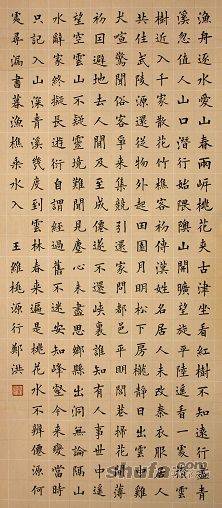 漁舟逐水愛山春兩岍桃花夾古津坐看紅樹不知遠行盡青
溪忽值人山口潛行始隈隩山開曠望旋平陸遥看一處攢雲
樹近入千家散花竹樵客初傳漢姓名居人未改秦衣服居人
共住武陵源還從物外起田園月明松下房櫳靜日出雲中雞
犬喧驚聞俗客爭來集競引還家問都邑平明閭巷掃花開薄
初因避地去人間及至成僊遂不還峽裏誰知有人事世中遥
望空雲山不疑靈境難聞見塵心未盡思鄉縣出洞無論隔山
水辭家終擬長遊衍自謂經過舊不迷安知峰壑今來變當時
只記入山深青溪幾度到雲林春來遍是桃花水不辨僊源何
處尋漏書暮漁樵乘水入 王維桃源行鄭洪